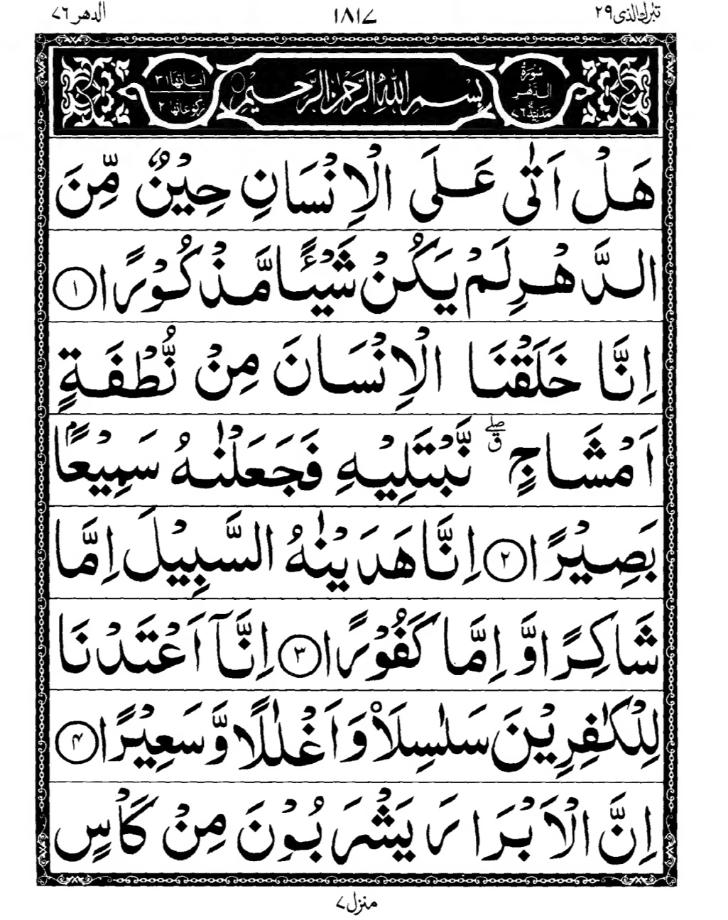 تبٰرك الذی ٢٩ ١٨١٧ الدهر ٧٦
سُوْرَةُ الدَّهْرِ مَدَنِيَّة ٧٦ بِسْمِ اللهِ الرَّحْمٰنِ الرَّحِيْمِ اٰيَاتُهَا ٣١ رُكُوْعَاتُهَا ٢
هَلْ اَتٰى عَلَى الْاِنْسَانِ حِيْنٌ مِّنَ
الدَّهْرِ لَمْ يَكُنْ شَيْـًٔا مَّذْكُوْرًا ۝١
اِنَّا خَلَقْنَا الْاِنْسَانَ مِنْ نُّطْفَةٍ
اَمْشَاجٍ ۖۗ نَّبْتَلِيْهِ فَجَعَلْنٰهُ سَمِيْعًۢا
بَصِيْرًا ۝٢ اِنَّا هَدَيْنٰهُ السَّبِيْلَ اِمَّا
شَاكِرًا وَّ اِمَّا كَفُوْرًا ۝٣ اِنَّاۤ اَعْتَدْنَا
لِلْكٰفِرِيْنَ سَلٰسِلَا۟ وَ اَغْلٰلًا وَّ سَعِيْرًا ۝٤
اِنَّ الْاَبْرَارَ يَشْرَبُوْنَ مِنْ كَاْسٍ
منزل ٧